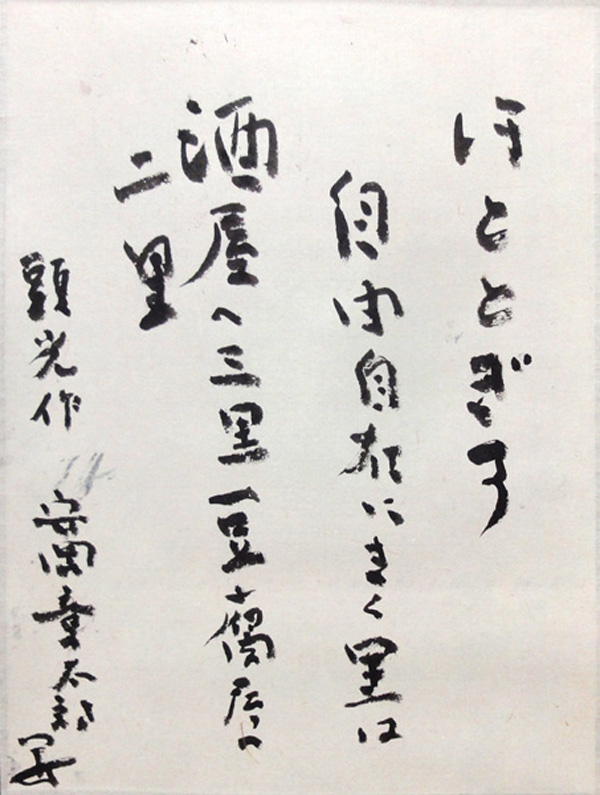 ほととぎす
自由自在にきく里は
酒屋へ三里豆腐屋へ
二里
頭光作 安岡章太郎 写